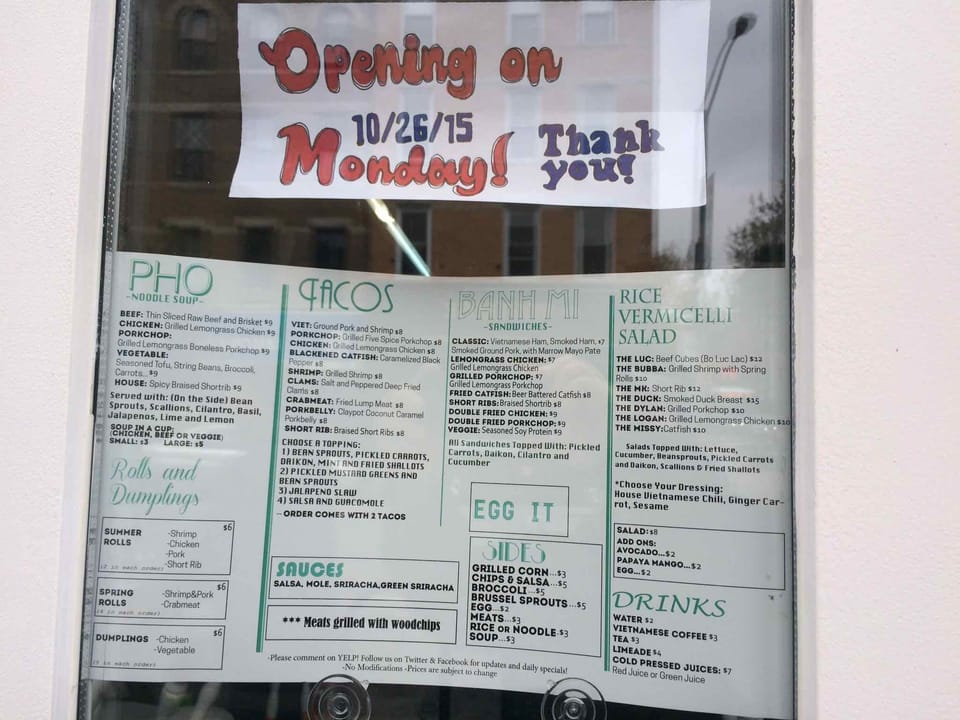 Opening on
10/26/15
Monday! Thank you!
PHO
-NOODLE SOUP-
BEEF: Thin Sliced Raw Beef and Brisket $9
CHICKEN: Grilled Lemongrass Chicken $9
PORKCHOP:
Grilled Lemongrass Boneless Porkchop $9
VEGETABLE:
Seasoned Tofu, String Beans, Broccoli,
Carrots...$9
HOUSE: Spicy Braised Shortrib $9
Served with: (On the Side) Bean
Sprouts, Scallions, Cilantro, Basil,
Jalapenos, Lime and Lemon
SOUP IN A CUP:
(CHICKEN, BEEF OR VEGGIE)
SMALL: $3 LARGE: $5
Rolls and
Dumplings
SUMMER ROLLS $6
-Shrimp
-Chicken
-Pork
-Short Rib
(2 in each order)
SPRING ROLLS $6
-Shrimp&Pork
-Crabmeat
(4 in each order)
DUMPLINGS $6
-Chicken
-Vegetable
in each order)
TACOS
VIET: Ground Pork and Shrimp $8
PORKCHOP: Grilled Five Spice Porkchop $8
CHICKEN: Grilled Lemongrass Chicken $8
BLACKENED CATFISH: Caramelized Black
Pepper $8
SHRIMP: Grilled Shrimp $8
CLAMS: Salt and Peppered Deep Fried
Clams $8
CRABMEAT: Fried Lump Meat $8
PORKBELLY: Claypot Coconut Caramel
Porkbelly $8
SHORT RIB: Braised Short Ribs $8
CHOOSE A TOPPING:
1) BEAN SPROUTS, PICKLED CARROTS,
DAIKON, MINT AND FRIED SHALLOTS
2) PICKLED MUSTARD GREENS AND
BEAN SPROUTS
3) JALAPENO SLAW
4) SALSA AND GUACOMOLE
- ORDER COMES WITH 2 TACOS
SAUCES
SALSA, MOLE, SRIRACHA,GREEN SRIRACHA
*** Meats grilled with woodchips
BANH MI
-SANDWICHES-
CLASSIC: Vietnamese Ham, Smoked Ham, $7
Smoked Ground Pork, with Marrow Mayo Pate
LEMONGRASS CHICKEN: $7
Grilled Lemongrass Chicken
GRILLED PORKCHOP: $7
Grilled Lemongrass Porkchop
FRIED CATFISH: Beer Battered Catfish $8
SHORT RIBS: Braised Shortrib $8
DOUBLE FRIED CHICKEN: $9
DOUBLE FRIED PORKCHOP: $9
VEGGIE: Seasoned Soy Protein $9
All Sandwiches Topped With: Pickled
Carrots, Daikon, Cilantro and
Cucumber
EGG IT
SIDES
GRILLED CORN...$3
CHIPS & SALSA...$5
BROCCOLI...$5
BRUSSEL SPROUTS...$5
EGG...$2
MEATS...$3
RICE OR NOODLE..$3
SOUP...$3
RICE
VERMICELLI
SALAD
THE LUC: Beef Cubes (Bo Luc Lac) $12
THE BUBBA: Grilled Shrimp with Spring
Rolls $10
THE MK: Short Rib $12
THE DUCK: Smoked Duck Breast $15
THE DYLAN: Grilled Porkchop $10
THE LOGAN: Grilled Lemongrass Chicken $10
THE MISSY:Catfish $10
Salads Topped With: Lettuce,
Cucumber, Beansprouts, Pickled Carrots
and Daikon, Scallions & Fried Shallots
*Choose Your Dressing:
House Vietnamese Chili, Ginger Car-
rot, Sesame
SALAD: $8
ADD ONS:
AVOCADO...$2
PAPAYA MANGO...$2
EGG...$2
DRINKS
WATER $2
VIETNAMESE COFFEE $3
TEA $3
LIMEADE $4
COLD PRESSED JUICES: $7
Red Juice or Green Juice
-Please comment on YELP! Follow us on Twitter & Facebook for updates and daily specials!
-No Modifications -Prices are subject to change